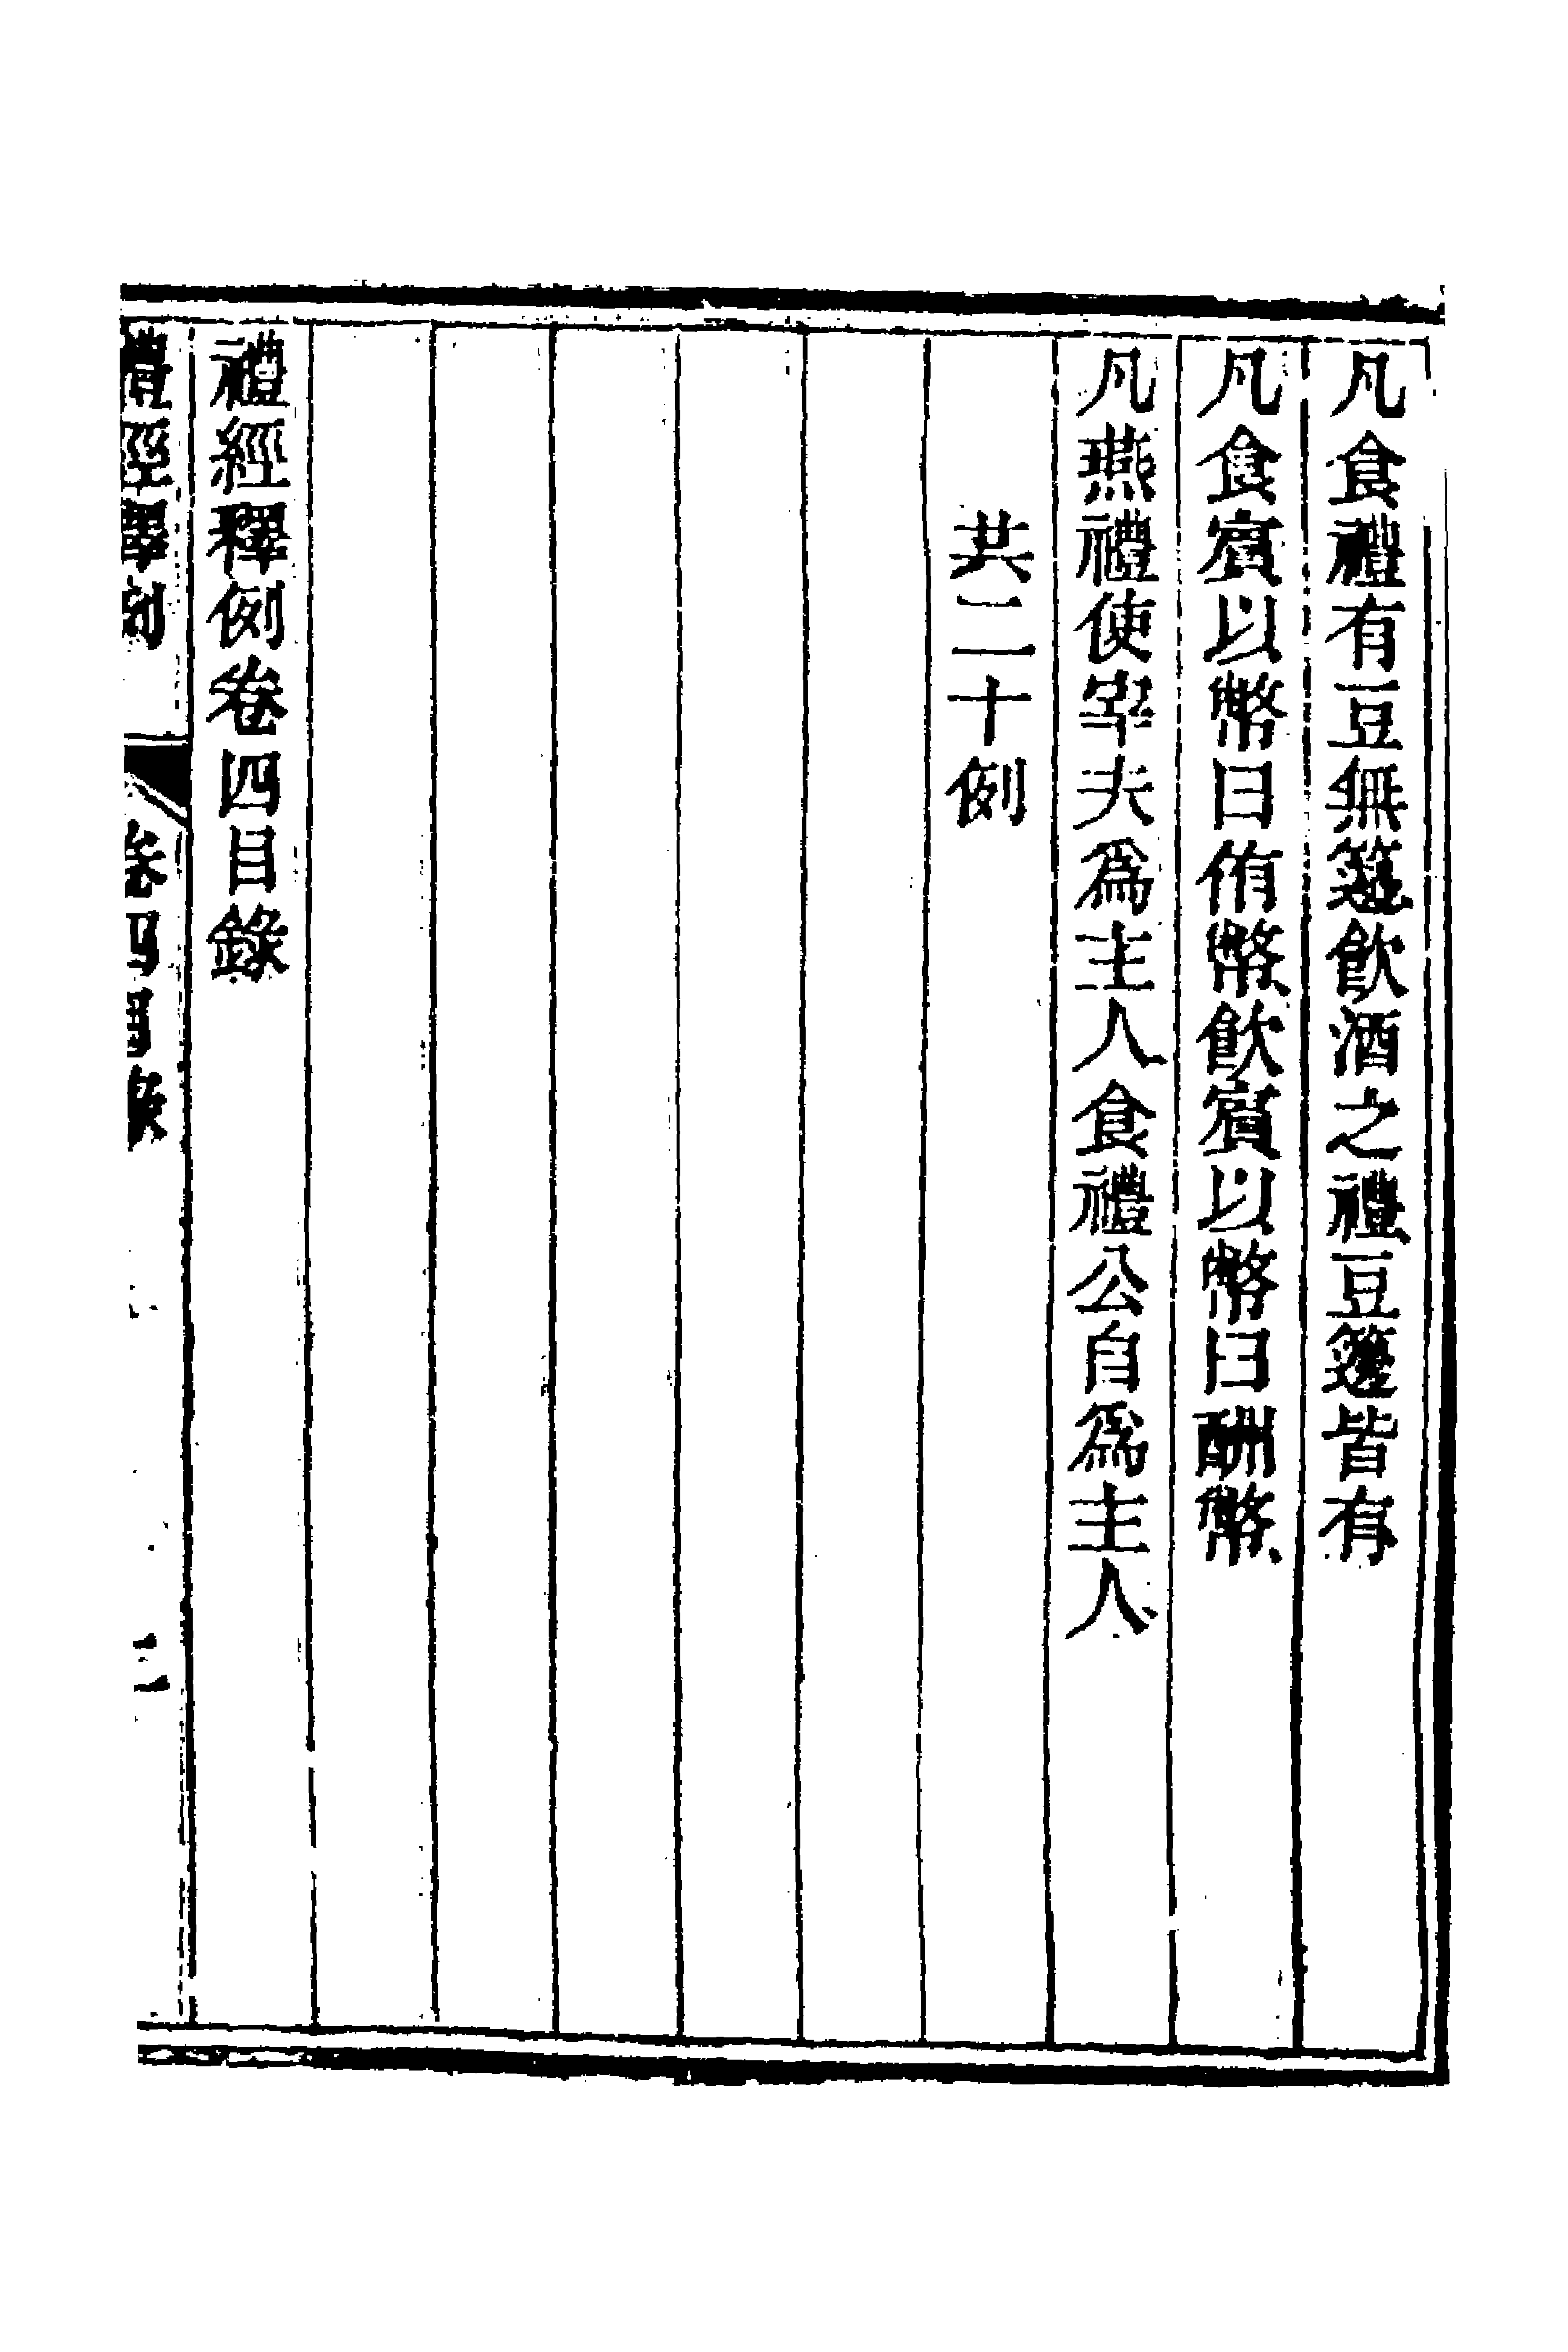 凡食禮有豆無籩飲酒之禮豆籩皆有
凡食賓以幣曰侑幣飲賓以幣曰酬幣
凡燕禮使宰夫爲主人食禮公自爲主人
共二十例
禮經釋例卷四目錄
禮經釋例 卷四目錄